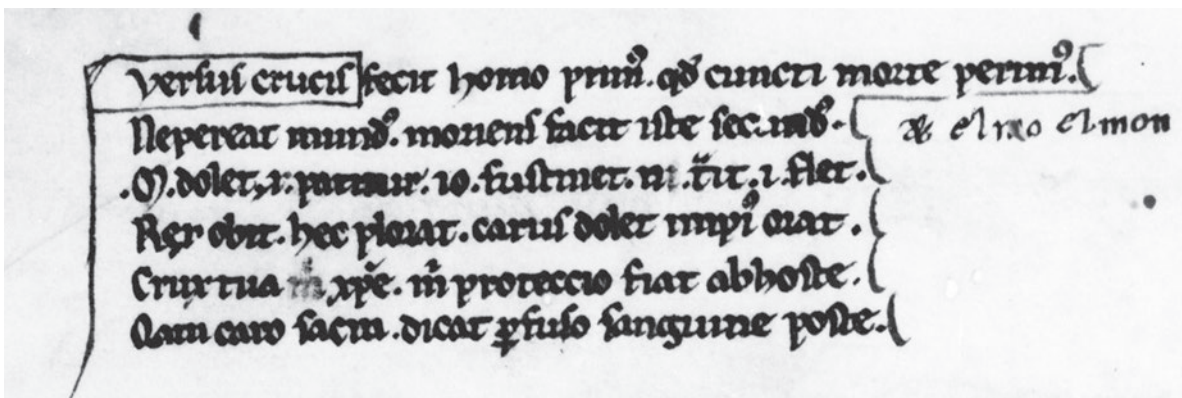 Versus crucis fecit homo prim᷒. qđ cuncti morte perim᷒.
Ne pereat mund᷒. moriens facit iste secund᷒.
.M. dolet, .i. patitur. io. sustinet. m̄ .t̄it. i. flet.
Rex obit. hec plorat. carus dolet impi᷒ orat.
Crux tua xp̄e. m̄ proteccio fiat ab hoste.
Nam caro sacra. dicat ꝑfuso sanguine poste.